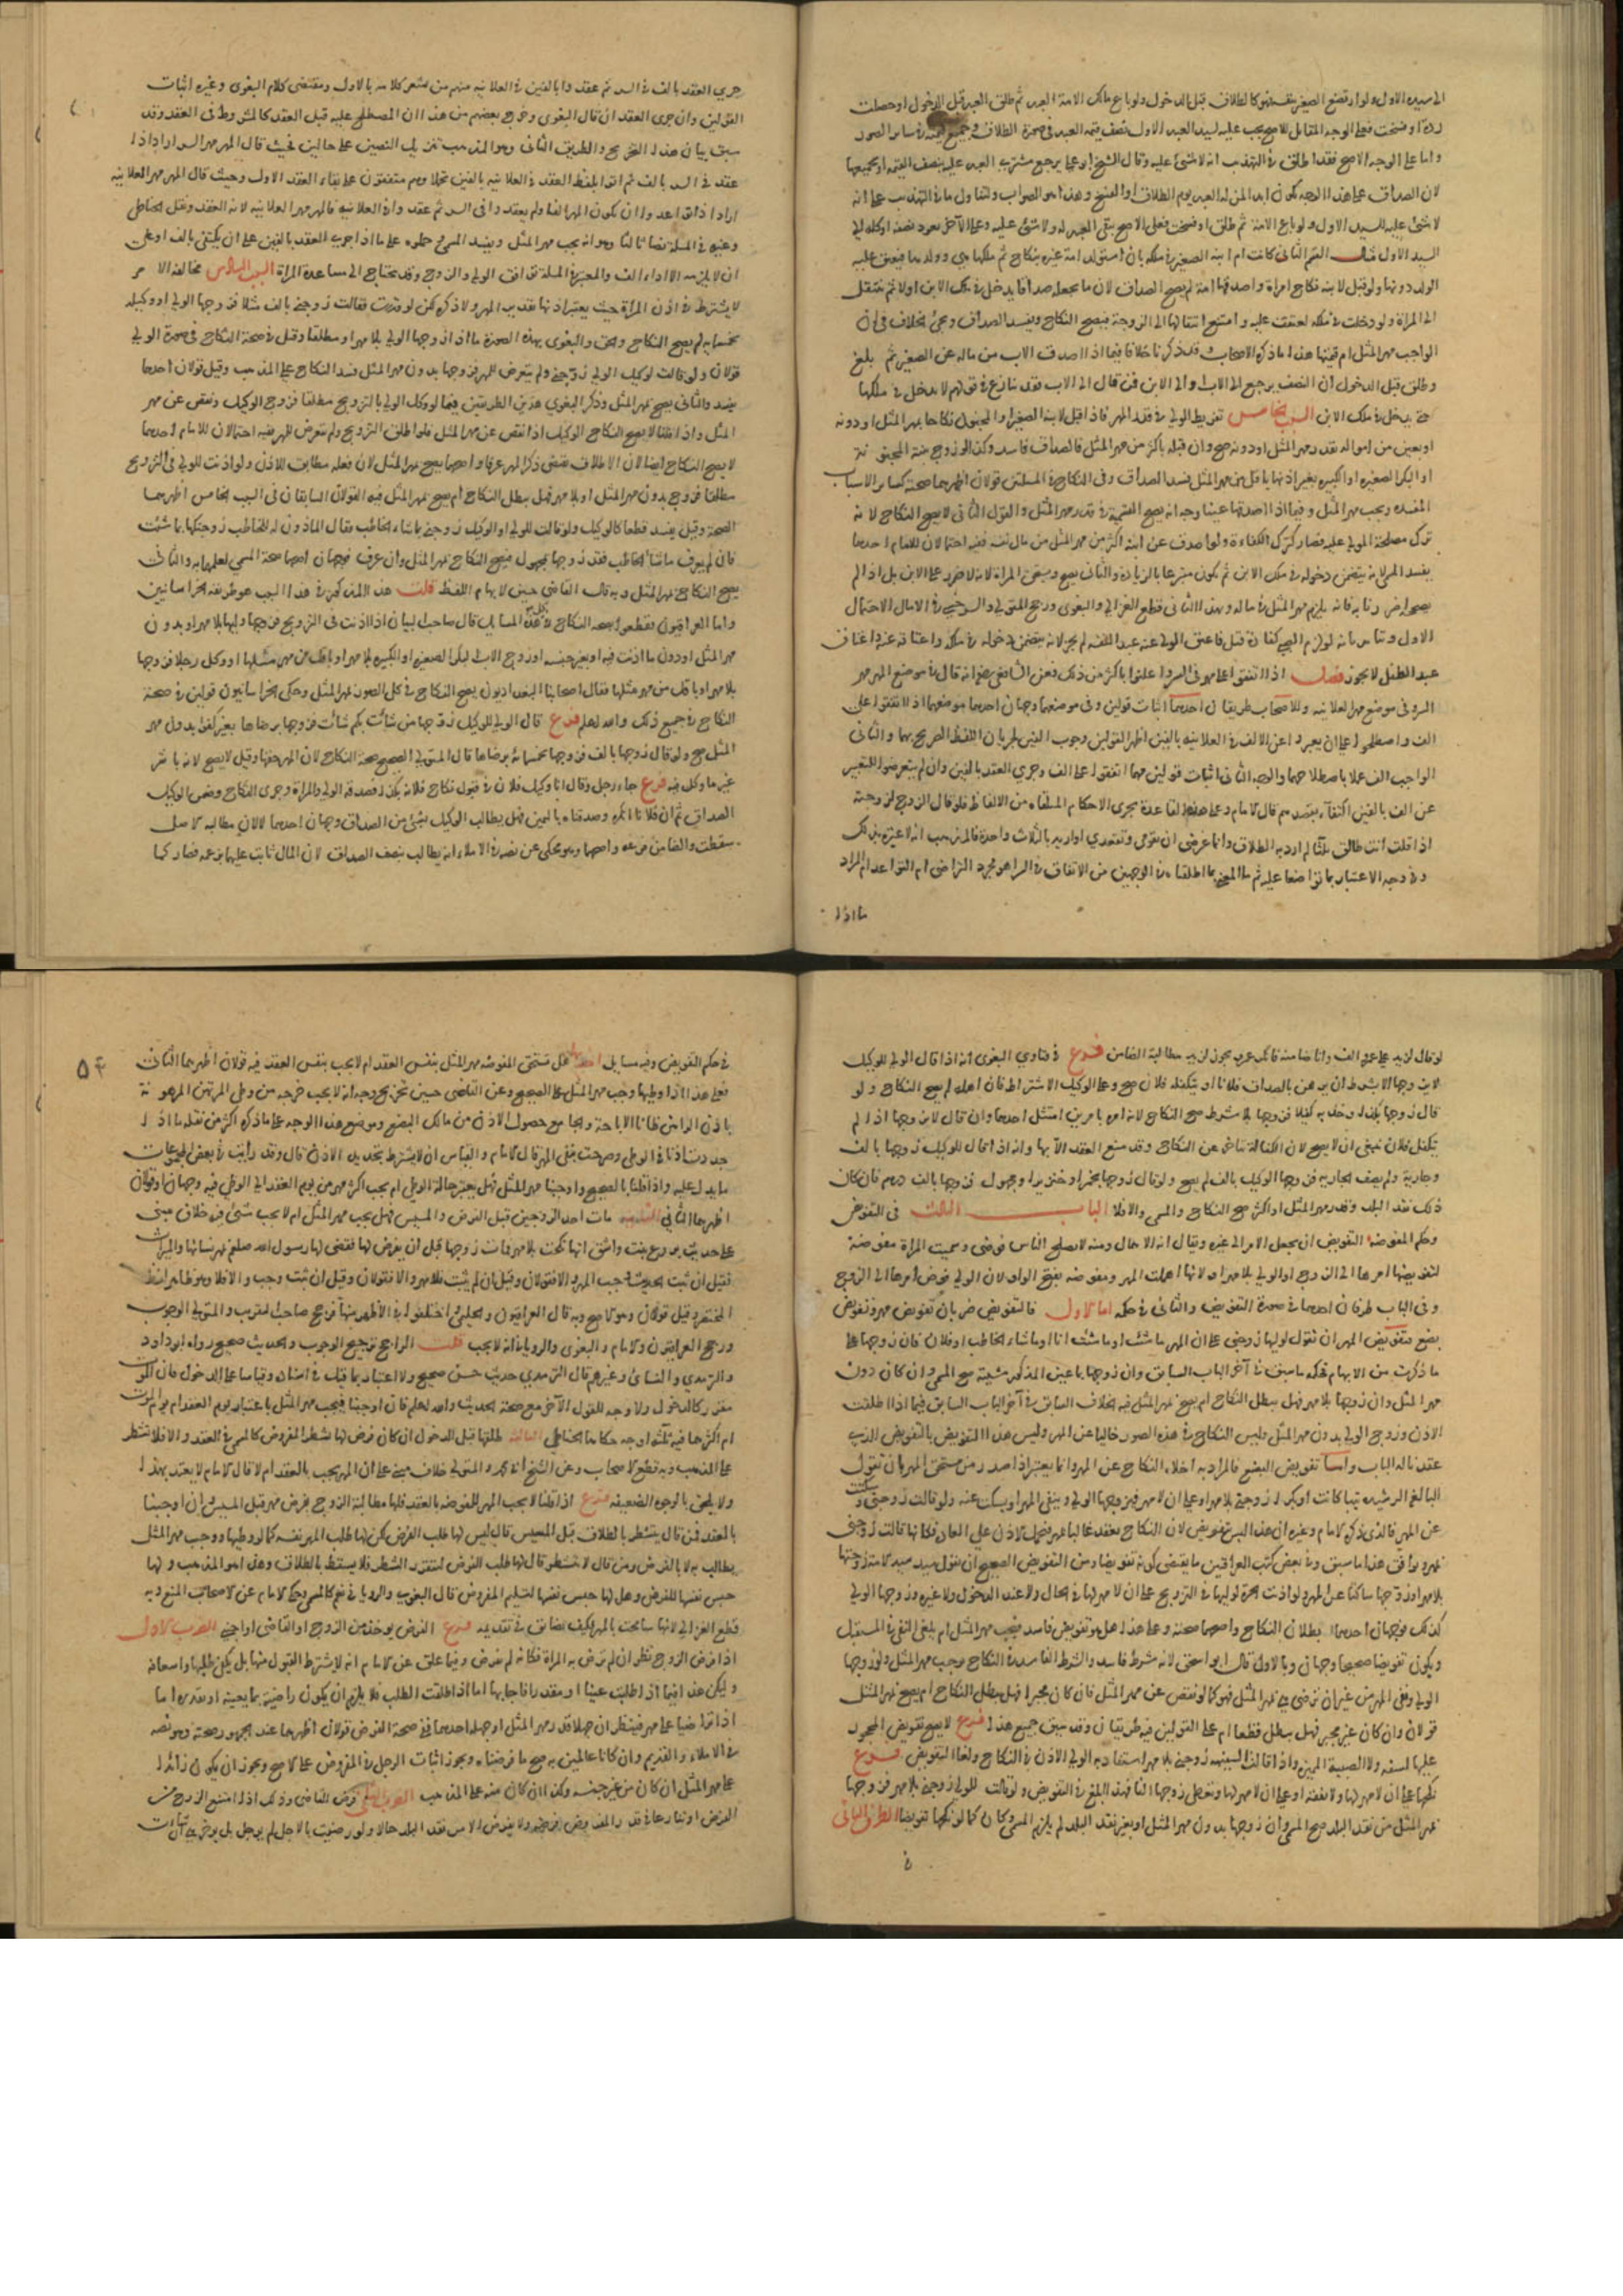 الى سيده الاول ولو ارتضع الصغير فهو كالطلاق قبل الدخول ولو باع مالك الامة العبد ثم طلق العبد قبل الدخول او حصلت
ردة او فسخت فعلى الوجه المقابل للاصح يجب عليه لسيد العبد الاول نصف قيمة العبد في صورة الطلاق وجميع في ساير الصور
واما على الوجه الاصح فقد اطلق في التهذيب انه لا شئ عليه وقال الشيخ ابو علي يرجع مشتري العبد عليه بنصف القيمة او جميعها
لان الصداق على هذا الوجه يكون ابدا لمن له العبد يوم الطلاق او الفسخ وهذا هو الصواب
لا شئ عليه للسيد الاول ولو باع الامة ثم طلق او فسخت فعلى الاصح يبقى العبد له ولا شئ عليه وعلى الآخر يعود نصفه او كله الى
السيد الاول القسم الثاني كانت ام ابنه الصغير في ملكه بان استولد امة غيره بنكاح ثم ملكها هي وولدها فيعتق عليه
الولد دونها ولو قبل لابنه نكاح امراة واصدقها امه لم يصح الصداق لان ما يجعله صداقا يدخل في ملك الابن اولا ثم ينتقل
الى المراة ولو دخلت في ملكه لعتقت عليه وامتنع انتقالها الى الزوجة فيصح النكاح ويفسد الصداق ويجئ الخلاف في ان
الواجب مهر المثل ام قيمتها هذا ما ذكره الاصحاب وقد ذكرنا خلافا فيما اذا اصدق الاب من ماله عن الصغير ثم بلغ
وطلق قبل الدخول ان النصف يرجع الى الاب او الى الابن فمن قال الى الاب فقد ينازع في قولهم لا يدخل في ملكها
حتى يدخل في ملك الابن السبب الخامس تفريط الولي في قدر المهر فاذا قبل لابنه الصغير او المجنون نكاحا بمهر المثل او دونه
او بعين من امواله بقدر مهر المثل او دونه صح وان قبله باكثر من مهر المثل فالصداق فاسد وكذا لو زوج بنته المجنونة
او البكر الصغيرة او الكبيرة بغير اذنها باقل من مهر المثل فسد الصداق وفي النكاح في المسئلتين قولان اظهرهما صحته كساير الاسباب
المفسدة ويجب مهر المثل وفيما اذا اصدقها عينا وجه انه يصح التسمية في قدر مهر المثل والقول الثاني لا يصح النكاح لانه
ترك مصلحة المولى عليه فصار كترك الكفاءة ولو اصدق عن ابنه اكثر من مهر المثل من مال نفسه ففيه احتمالان للامام احدهما
يفسد المهر لانه يتضمن دخوله في ملك الابن ثم يكون متبرعا بالزيادة والثاني يصح وتستحق المراة لانه لا ضرر على الابن بل اذا لم
يصح اضررنا به فانه يلزم مهر المثل في ماله وبهذا الثاني قطع الغزالي والبغوي ورجح المتولي والسرخسي الاحتمال
عبد الطفل لا يجوز فصل اذا اتفقوا على مهر في السر واعلنوا باكثر من ذلك فعن الشافعي رضي انه قال في موضع المهر مهر
السر وفي موضع مهر العلانية وللاصحاب طريقان احدهما اثبات قولين وفي موضعهما وجهان احدهما موضعهما اذا اتفقوا على
الف واصطلحوا على ان يعبروا عن الالف في العلانية بالفين اظهر القولين وجوب الفين لجريان اللفظ الصريح بهما والثاني
الواجب الف عملا باصطلاحهما والوجه الثاني اثبات قولين مهما اتفقوا على الف وجرى العقد بالفين وان لم يتعرضوا للتعبير
عن الف بالفين اكتفاء بقصدهم قال الامام وعلى هذه القاعدة تجري الاحكام المتلقاة من الالفاظ فلو قال الزوج لزوجته
اذا قلت انت طالق ثلثا لم ارد به الطلاق وانما غرضي ان تقومي وتقعدي او اريد بالثلاث واحدة فالمذهب انه لا عبرة بذلك
وفي وجه الاعتبار بما تواضعا عليه ثم ما المعنى بما اطلقناه في الوجهين من الاتفاق في السر اهو مجرد التراضي ام التواعد ام المراد
ما اذا
جرى العقد بالف في السر ثم عقدوا بالفين في العلانية منهم من يشعر كلامه بالاول ومقتضى كلام البغوي وغيره اثبات
القولين وان جرى العقدان قال البغوي وخرج بعضهم من هذا ان المصطلح عليه قبل العقد كالمشروط في العقد وقد
سبق بيان هذا التخريج والطريق الثاني وهو المذهب تنزيل النصين على حالين فحيث قال المهر مهر السر اراد اذا
عقد في السر بالف ثم اتوا بلفظ العقد في العلانية بالفين تجملا وهم متفقون على بقاء العقد الاول وحيث قال المهر مهر العلانية
اراد اذا تواعدوا ان يكون المهر الفا ولم يعقدوا في السر ثم عقدوا في العلانية فالمهر مهر العلانية لانه العقد ونقل الحناطي
وغيره في المسئلة نصا ثالثا وهو انه يجب مهر المثل ويفسد المسمى وحملوه على ما اذا جرى العقد بالفين على ان يكتفي بالف او على
ان لا يلزمه الا اداء الف والمعتبر في المسئلة توافق الولي والزوج وقد يحتاج الى مساعدة المراة السبب السادس مخالفة الامر
لا يشترط في اذن المراة حيث يعتبر اذنها تقدير المهر ولا ذكره لكن لو قدرت فقالت زوجني بالف مثلا فزوجها الولي او وكيله
بخمسمايه لم يصح النكاح والحق والبغوي بهذه الصورة ما اذا زوجها الولي بلا مهر او مطلقا وقيل في صحة النكاح في صورة الولي
قولان ولو قالت لوكيل الولي زوجني ولم يتعرض للمهر فزوجها بدون مهر المثل فسد النكاح على المذهب وقيل قولان احدهما
يفسد والثاني يصح بمهر المثل وذكر البغوي هذين الطريقين فيما لو وكل الولي بالتزويج مطلقا فزوج الوكيل ونقص عن مهر
المثل واذا قلنا لا يصح النكاح الوكيل اذا نقص عن مهر المثل فلو اطلق التزويج ولم يتعرض للمهر ففيه احتمالان للامام احدهما
لا يصح النكاح ايضا لان الاطلاق يقتضي ذكر المهر عرفا واصحهما يصح بمهر المثل لان فعله مطابق للاذن ولو اذنت للولي في التزويج
مطلقا فزوج بدون مهر المثل او بلا مهر فهل يبطل النكاح ام يصح بمهر المثل فيه القولان السابقان في السبب الخامس اظهرهما
الصحة وقيل يفسد قطعا كالوكيل ولو قالت للولي او الوكيل زوجني بما شاء الخاطب فقال الماذون له للخاطب زوجتكها بما شئت
فان لم يعرف ما شاء الخاطب فقد زوجها بمجهول فيصح النكاح بمهر المثل وان عرف فوجهان اصحهما صحة المسمى لعلمهما به والثاني
يصح النكاح بمهر المثل وبه قال القاضي حسين لابهام اللفظ قلت هذا المذكور في هذا السبب هو طريقة الخراسانيين
واما العراقيون فقطعوا بصحة النكاح في كل هذه المسايل قال صاحب البيان اذا اذنت في التزويج فزوجها وليها بلا مهر او بدون
مهر المثل او دون ما اذنت فيه او بغير جنسه او زوج الاب البكر الصغيرة او الكبيرة بلا مهر او باقل من مهر مثلها او وكل رجلا فزوجها
بلا مهر او باقل من مهر مثلها فقال اصحابنا البغداديون يصح النكاح في كل الصور بمهر المثل وحكى الخراسانيون قولين في صحة
النكاح في جميع ذلك والله اعلم فرع قال الولي للوكيل زوجها من شاءت بكم شاءت فزوجها برضاها بغير كفو بدون مهر
المثل صح ولو قال زوجها بالف فزوجها بخمسمائة برضاها قال المتولي الصحيح صحة النكاح لان المهر حقها وقيل لا يصح لانه باشر
غير ما وكل فيه فرع جاء رجل وقال انا وكيل فلان في قبول نكاح فلانة بكذا فصدقه الولي والمراة وجرى النكاح وضمن الوكيل
الصداق ثم ان فلانا انكره وصدقناه باليمين فهل يطالب الوكيل بشئ من الصداق وجهان احدهما لا لان مطالبة الاصل
سقطت والضامن فرعه واصحهما وهو محكي عن نصه في الاملاء انه يطالب بنصف الصداق لان المال ثابت عليهما بزعمه فصار كما
لو قال لزيد على عمرو الف وانا ضامنه فانكر عمرو يجوز لزيد مطالبة الضامن فرع في فتاوي البغوي انه اذا قال الولي للوكيل
لا تزوجها الا بشرط ان يرهن بالصداق فلانا او يتكفله فلان صح وعلى الوكيل الاشتراط فان اهله لم يصح النكاح ولو
قال زوجها بكذا وخذ به كفيلا فزوجها بلا شرط صح النكاح لانه امره بامرين امتثل احدهما وان قال لا تزوجها اذا لم
يتكفل فلان ينبغي ان لا يصح لان الكفالة تتاخر عن النكاح وقد منع العقد الا بها وانه اذا قال للوكيل زوجها بالف
وجارية ولم يصف الجارية فزوجها الوكيل بالف لم يصح ولو قال زوجها بخمر او خنزير او مجهول فزوجها بالف درهم فان كان
ذلك نقد البلد وقدر مهر المثل او اكثر صح النكاح والمسمى والا فلا الباب الثالث في التفويض
وحكم المفوضة التفويض ان يجعل الامر الى غيره ويقال انه الاهمال ومنه لا يصلح الناس فوضى وسميت المراة مفوضة
لتفويضها امرها الى الزوج او الولي بلا مهر او لانها اهملت المهر ومفوضه بفتح الواو لان الولي فوض امرها الى الزوج
وفي الباب طرفان احدهما في صورة التفويض والثاني في حكمه اما الاول فالتفويض ضربان تفويض مهر وتفويض
بضع وتفويض المهر ان تقول لوليها زوجني على ان المهر ما شئت او ما شئت انا او ما شاء الخاطب او فلان فان زوجها على
ما ذكرت من الابهام فحكمه ما سبق في آخر الباب السابق وان زوجها بما عين المذكور مشيته صح المسمى وان كان دون
مهر المثل وان زوجها بلا مهر فهل يبطل النكاح ام يصح بمهر المثل فيه الخلاف السابق في آخر الباب السابق فيما اذا اطلقت
الاذن وزوج الولي بدون مهر المثل وليس النكاح في هذه الصور خاليا عن المهر وليس هذا التفويض بالتفويض الذي
عقدنا له الباب واما تفويض البضع فالمراد به اخلاء النكاح عن المهر وانما يعتبر اذا صدر من مستحق المهر بان تقول
البالغة الرشيدة ثيبا كانت او بكرا زوجني بلا مهر او على ان لا مهر فيزوجها الولي وينفي المهر او يسكت عنه ولو قالت زوجني وسكتت
عن المهر فالذي ذكره الامام وغيره ان هذا ليس بتفويض لان النكاح يعقد غالبا بمهر فيحمل الاذن على العادة فكانها قالت زوجني
بمهر ويوافق هذا ما سبق وفي بعض كتب العراقيين ما يقتضي كونه تفويضا ومن التفويض الصحيح ان يقول سيد الامة زوجتكها
بلا مهر او زوجها ساكتا عن المهر ولو اذنت الحرة لوليها في التزويج على ان لا مهر لها في الحال ولا عند الدخول ولا غيره وزوجها الولي
كذلك فوجهان احدهما بطلان النكاح واصحهما صحته وعلى هذا هل هو تفويض فاسد فيجب مهر المثل ام يلغى النفي في المستقبل
ويكون تفويضا صحيحا وجهان وبالاول قال ابو اسحق لانه شرط فاسد والشرط الفاسد في النكاح يوجب مهر المثل ولو زوجها
الولي ونفى المهر من غير ان ترضى هي بمهر المثل فهو كما لو نقص عن مهر المثل فان كان مجبرا فهل يبطل النكاح ام يصح بمهر المثل
قولان وان كان غير مجبر فهل يبطل قطعا ام على القولين فيه طريقان وقد سبق جميع هذا فرع لا يصح تفويض المحجور
عليها لسفه ولا الصبية المميزة واذا قالت السفيهة زوجني بلا مهر استفاد به الولي الاذن في النكاح ولغا التفويض فرع
نكحها على ان لا مهر لها ولا نفقة او على ان لا مهر لها وتعطي زوجها الفا فهذا ابلغ في التفويض ولو قالت للولي زوجني بلا مهر فزوجها
بمهر المثل من نقد البلد صح المسمى وان زوجها بدون مهر المثل او بغير نقد البلد لم يلزم المسمى وكان كما لو نكحها تفويضا الطرف الثاني
في
٥٤
في حكم التفويض وفيه مسايل احداها هل تستحق المفوضه مهر المثل بنفس العقد ام لا يجب بنفس العقد فيه قولان اظهرهما الثاني
فعلى هذا اذا وطيها وجب مهر المثل على الصحيح وعن القاضي حسين تخريج وجه انه لا يجب خرجه من وطئ المرتهن المرهونة
باذن الراهن ظانا الاباحة والجامع حصول الاذن من مالك البضع وموضع هذا الوجه على ما ذكره اكثر من نقله ما اذا
جددت اذنا في الوطي وصرحت بنفي المهر قال الامام والقياس ان لا يشترط تجديد الاذن قال وقد رأيت في بعض المجموعات
ما يدل عليه واذا قلنا بالصحيح واوجبنا مهر المثل فهل يعتبر حالة الوطي ام يجب اكثر مهر من يوم العقد الى الوطي فيه وجهان او قولان
اظهرهما الثاني الثانية مات احد الزوجين قبل الفرض والمسيس فهل يجب مهر المثل ام لا يجب شئ فيه خلاف مبني
على حديث بروع بنت واشق انها نكحت بلا مهر فمات زوجها قبل ان يفرض لها فقضى لها رسول الله صلعم بمهر نسائها والميراث
فقيل ان ثبت الحديث وجب المهر والا فقولان وقيل ان لم يثبت فلا مهر والا فقولان وقيل ان ثبت وجب والا فلا وهو ظاهر لفظ
المختصر وقيل قولان وهو الاصح وبه قال العراقيون والحليمي واختلفوا في الاظهر منهما فرجح صاحب التقريب والمتولي الوجوب
ورجح العراقيون والامام والبغوي والروياني انه لا يجب قلت الراجح ترجيح الوجوب والحديث صحيح رواه ابو داود
والترمذي والنسائ وغيرهم قال الترمذي حديث حسن صحيح ولا اعتبار بما قيل في اسناده وقياسا على الدخول فان الموت
مقرر كالدخول ولا وجه للقول الآخر مع صحة الحديث والله اعلم فان اوجبنا فيجب مهر المثل باعتبار يوم العقد ام يوم الموت
ام اكثرهما فيه ثلثه اوجه حكاها الحناطي الثالثة طلقها قبل الدخول ان كان فرض لها تشطر المفروض كالمسمى في العقد والا فلا تشطر
على المذهب وبه قطع الاصحاب وعن الشيخ ابي محمد والمتولي خلاف مبني على ان المهر يجب بالعقد ام لا قال الامام لا يعتد بهذا
ولا يلحق بالوجوه الضعيفة فرع اذا قلنا لا يجب المهر للمفوضة بالعقد فلها مطالبة الزوج بفرض مهر قبل المسيس وان اوجبنا
بالعقد فمن قال يتشطر بالطلاق قبل المسيس قال ليس لها طلب الفرض لكن لها طلب المهر نفسه كما لو وطيها ووجب مهر المثل
يطالب به لا بالفرض ومن قال لا يتشطر قال لها طلب الفرض لتقرر الشطر فلا يسقط بالطلاق وهذا هو المذهب ولها
حبس نفسها للفرض وهل لها حبس نفسها لتسليم المفروض قال البغوي والروياني نعم كالمسمى وحكى الامام عن الاصحاب المنع وبه
قطع الغزالي لانها سامحت بالمهر فكيف تضايق في تقديمه فرع الفرض يوجد من الزوج او القاضي او اجنبي الضرب الاول
اذا فرض الزوج نظر ان لم ترض به المراة فكانه لم يفرض وفيما علق عن الامام انه لا يشترط القبول منها بل يكفي طلبها واسعافه
وليكن هذا فيما اذا طلبت عينا او مقدرا فاجابها اما اذا اطلقت الطلب فلا يلزم ان يكون راضية بما يعينه او يقدره اما
اذا تراضيا على مهر فينظر ان جهلا قدر مهر المثل او جهله احدهما ففي صحة الفرض قولان اظهرهما عند الجمهور صحته وهو نصه
في الاملاء والقديم وان كانا عالمين به صح ما فرضناه ويجوز اثبات الاجل في المفروض على الاصح ويجوز ان يكون زائدا
على مهر المثل ان كان من غير جنسه وكذا ان كان منه على المذهب الضرب الثاني فرض القاضي وذلك اذا امتنع الزوج من
الفرض او تنازعا في قدر المفروض ولا يفرض الا من نقد البلد حالا ولو رضيت بالاجل لم يوجل بل يوخر هي ان شاءت